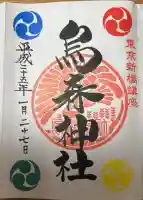 東京新橋鎮座
烏森神社
平成二十五年
一月二十七日